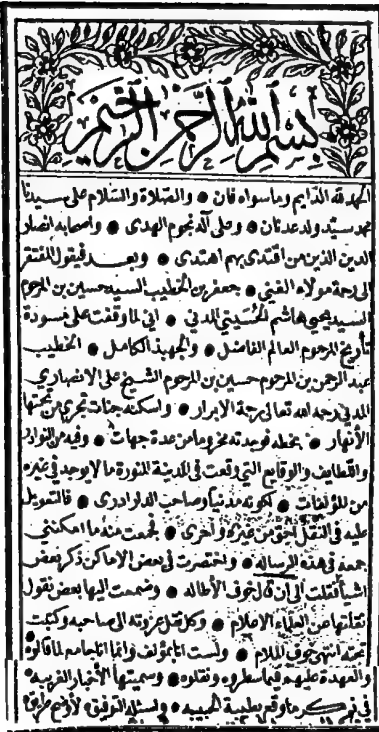 بسم الله الرحمن الرحيم
الحمد لله الدايم وما سواه فان ● والصلاة والسلام على سيدنا
محمد سيد ولد عدنان ● وعلى آله نجوم الهدى ● وأصحابه انصار
الدين الذين من اقتدى بهم اهتدى ● وبعد فيقول المفتقر
الى رحمة مولاه الغني ● جعفر بن الخطيب السيد حسين بن المرحوم
السيد يحيى هاشم الحسيني المدني ● اني لما وقفت على مسودة
تأريخ المرحوم العالم الفاضل ● والجهبذ الكامل ● الخطيب
عبد الرحمن بن المرحوم حسين بن المرحوم الشيخ على الانصاري
المدني رحمه الله تعالى رحمة الابرار ● واسكنه جنات تجري من تحتها
الأنهار ● بخطه فوجدته مخروما من عدة جهات ● وفيه من النوادر
واللطايف والوقايع التي وقعت في المدينة المنورة ما لا يوجد في غيره
من المؤلفات ● لكونه مدنيا وصاحب الدار ادرى ● فالتعويل
عليه في النقل أحق من غيره وأحرى ● فجمعت منه ما امكنني
جمعه في هذه الرساله ● واختصرت في بعض الاماكن ذكر بعض
اشيا نقلت الى آن خوف الأطاله ● وضممت اليها بعض نقول
نقلتها عن العلماء الاعلام ● وكل نقل عزوته الى صاحبه وكتبت
عنه انتهى خوف الملام ● ولست انا بمؤلف وانما انا جامع لما قالوه
والعهدة عليهم فيما سطروه ونقلوه ● وسميتها الأخبار الغريبه
في ذكر ما وقع بطيبة الحبيبه ● ونسئله التوفيق لأوضح طريق